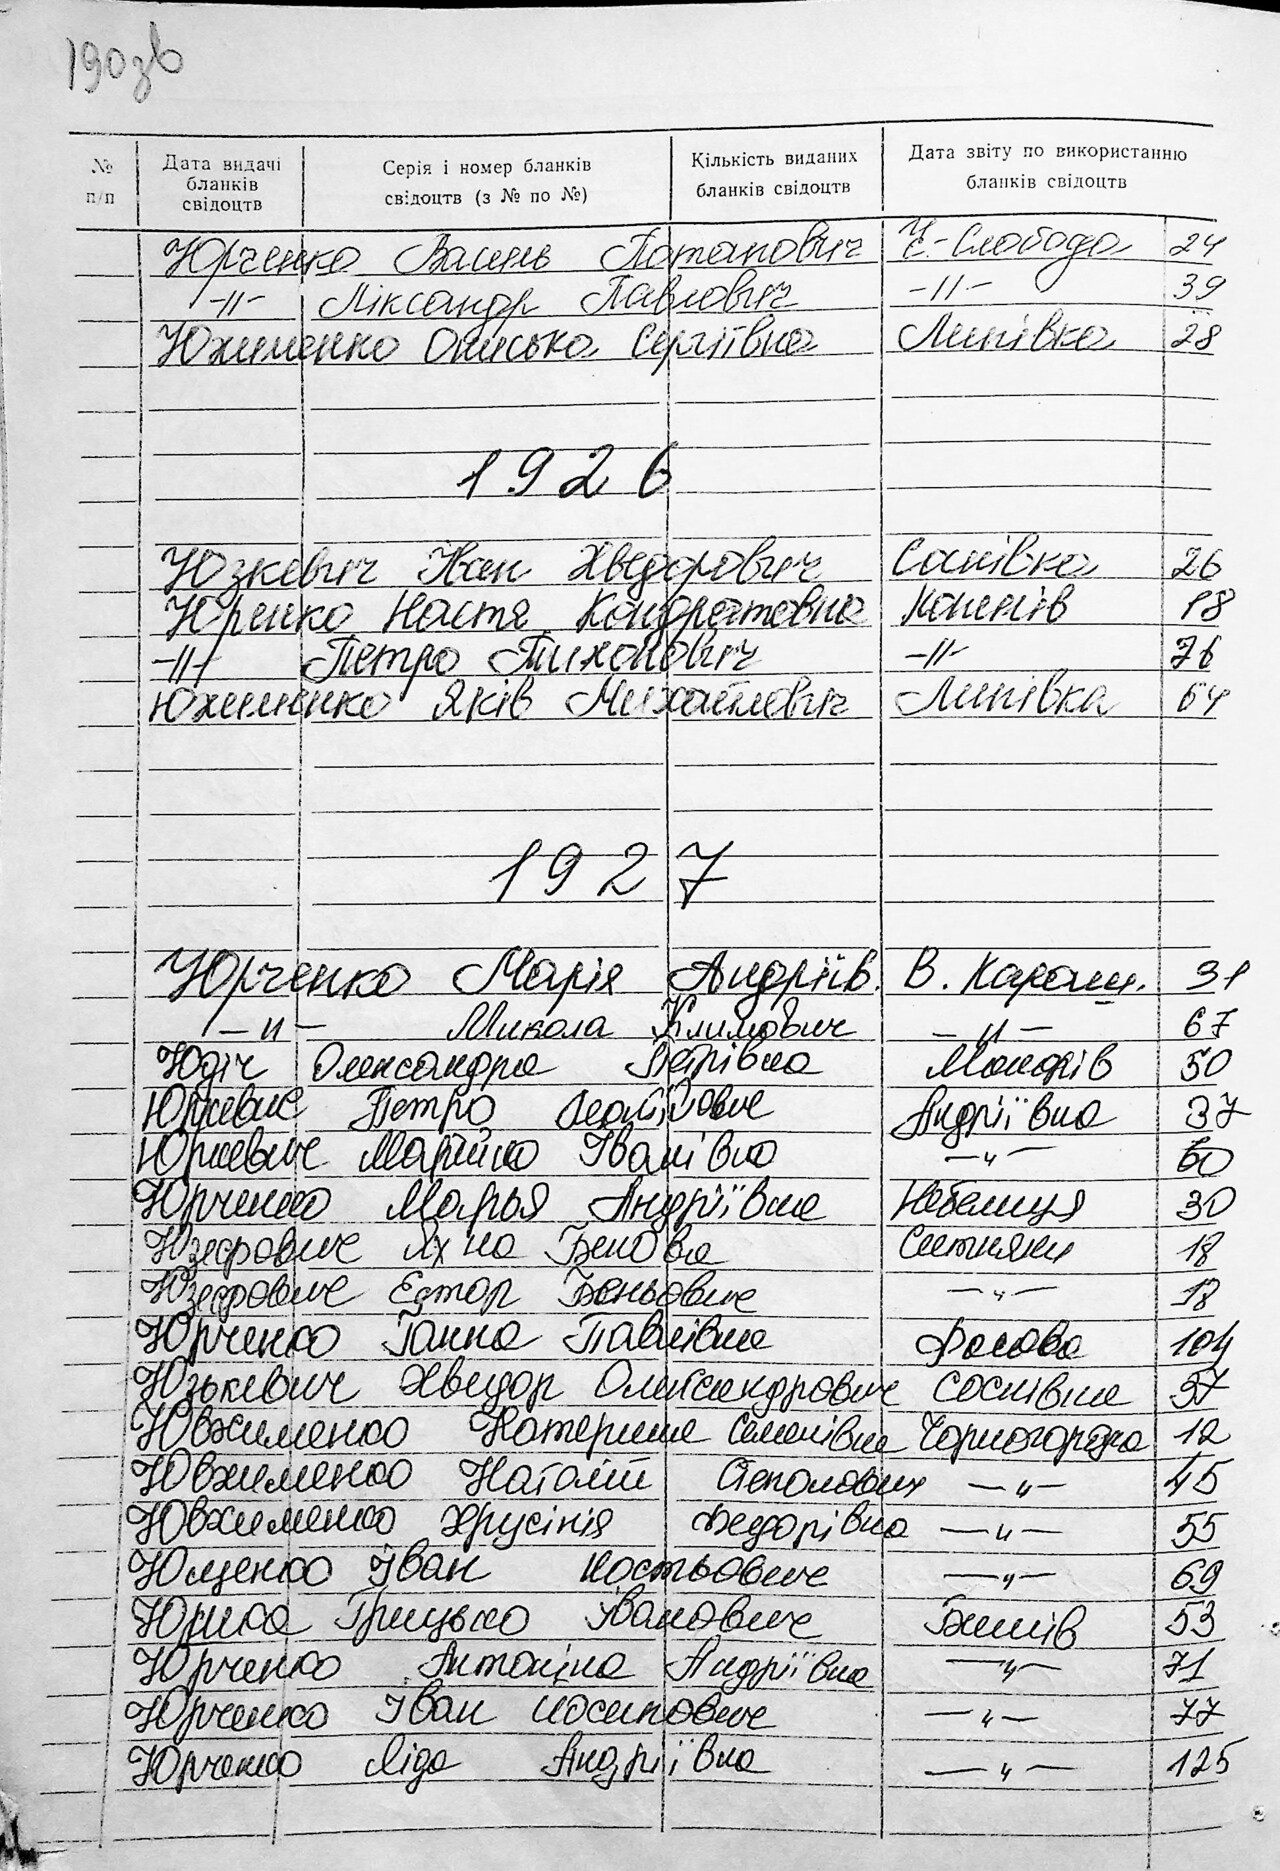 190зв
№ п/п Дата видачі бланків свідоцтв Серія і номер бланків свідоцтв (з № по №) Кількість виданих бланків свідоцтв Дата звіту по використанню бланків свідоцтв
Юрченко Василь Потапович Ч.-Слобода 24
-"- Ліксандр Павлович -"- 39
Юхименко Ониська Сергіївна Липівка 28
1926
Юзкевич Іван Хведорович Соснівка 26
Юренко Настя Кондратовна Копилів 18
-"- Петро Тихонович -"- 76
Юхименко Яків Михайлович Липівка 64
1927
Юрченко Марія Андріїв. В. Караш. 31
-"- Микола Климович -"- 67
Юдіч Олександра Петрівна Макарів 50
Юркевич Петро Андріївка 37
Юркевич Марійка Іванівна -"- 60
Юрченко Марья Андріївна Небелиця 30
Юзефович Яхна Бенова Ситняки 18
Юзефович Естор Беньович -"- 18
Юрченко Ганна Павлівна Фасова 104
Юзькевич Хведор Олександрович Соснівка 37
Ювхименко Катерина Семенівна Чорногородка 12
Ювхименко Наталія -"- 45
Ювхименко Хрусінія Федорівна -"- 55
Ющенко Іван Костьович -"- 69
Юрика Грицько Іванович Бишів 53
Юрченко Антоніна Андріївна -"- 71
Юрченко Іван Йосипович -"- 77
Юрченко Ліда Андріївна -"- 125